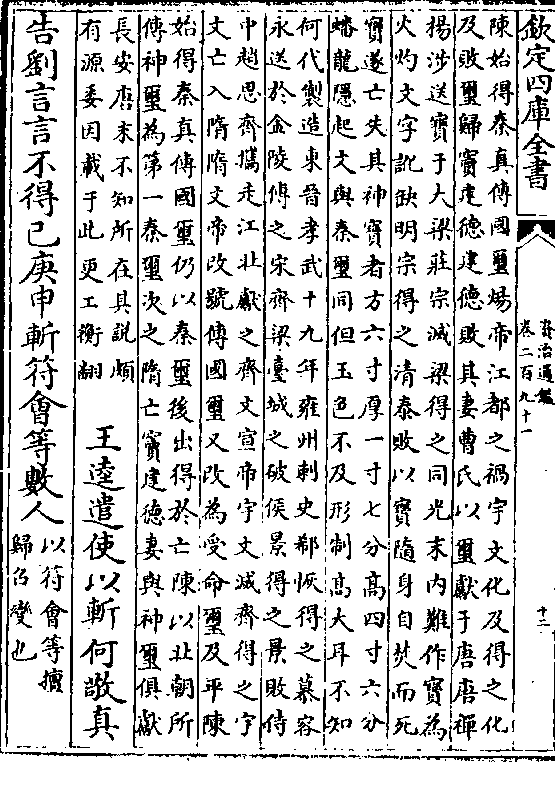 欽定四庫全書
資治通鑑
卷二百九十一
十二
陳始得秦真傳國璽煬帝江都之禍宇文化及得之化
及敗璽歸竇建德建德敗其妻曹氏以璽獻于唐唐禪
楊涉送寳于大梁莊宗滅梁得之同光末内難作寳為
火灼文字訛缺明宗得之清泰敗以寳隨身自焚而死
寳遂亡失其神寳者方六寸厚一寸七分高四寸六分
蟠龍隱起文與秦璽同但玉色不及形制髙大耳不知
何代製造東晉孝武十九年雍州刺史郗恢得之慕容
永送於金陵傳之宋齊梁臺城之破侯景得之景敗侍
中趙思齊攜走江北獻之齊文宣帝宇文滅齊得之宇
文亡入隋隋文帝改號傳國璽又改為受命璽及平陳
始得秦真傳國璽仍以秦璽後出得於亡陳以北朝所
傳神璽為第一秦璽次之隋亡竇建德妻與神璽俱獻
長安唐末不知所在其說頗
有源委因載于此更工衡翻
王逵遣使以斬何敬真
告劉言言不得已庚申斬符會等數人
以符會等擅
歸召變也